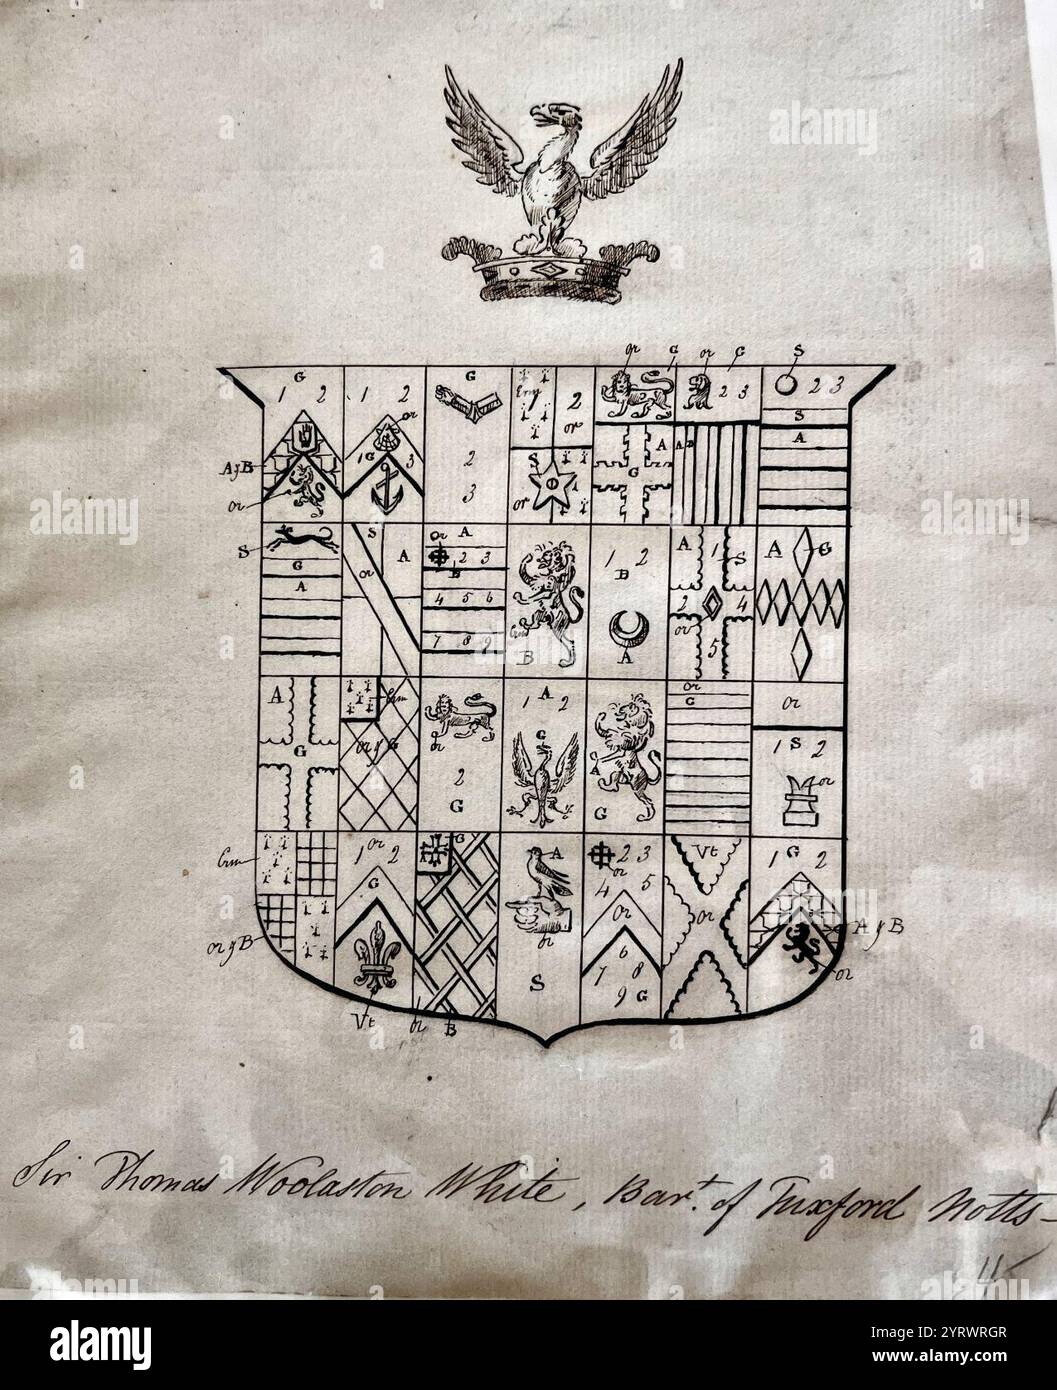 or G or G S
G
1 2
1 2
or
G
2
3
Erm
2
or
2 3
2 3
S
A
A y B
or
1 G 3
S
or
A
G
A B
S
G
A
S
or
A
or A
2 3
B
4 5 6
7 8 9
Erm
B
1 2
B
A
A 1 S
2 4
or
5
A G
A
G
Erm
or y G
or
2
G
A
1 2
G
A
G
or
G
or
1 S 2
or
Erm
or y B
or
1 2
G
Vt
G
or B
A
or
S
2 3
or
4 5
or
6
7 8
9 G
Vt
or
1 G 2
A y B
or
Sir Thomas Woolaston White, Bart. of Tuxford Notts-
alamy
Image ID: 2YRWRGR
www.alamy.com